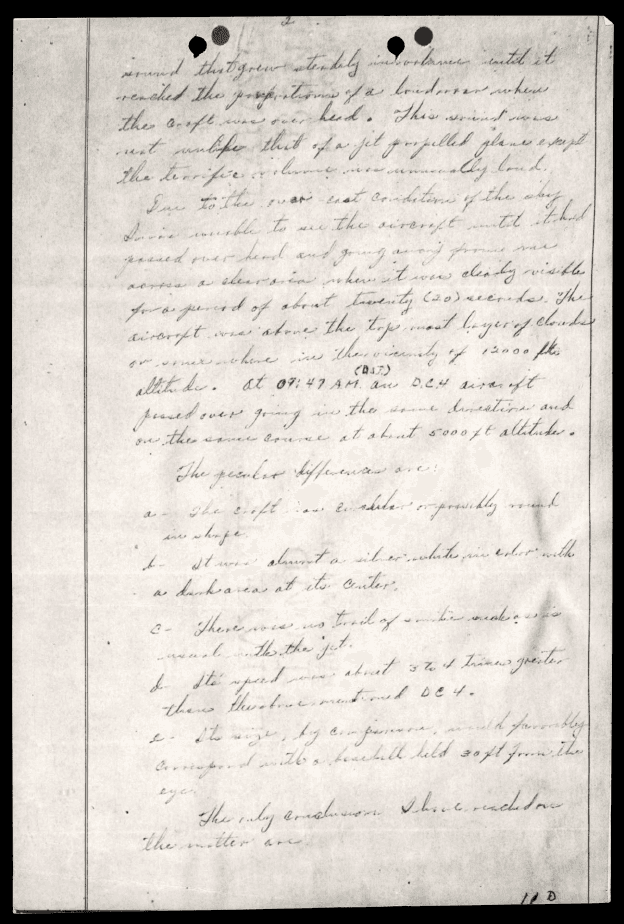 2
sound that grew steadily in volume until it
reached the proportions of a loud roar when
the craft was over head. This sound was
not unlike that of a jet propelled plane except
the terrific volume was unusually loud.
Due to the over cast condition of the sky
I was unable to see the aircraft until it had
passed over head and going away from me
across a clear area where it was clearly visible
for a period of about twenty (20) seconds. The
aircraft was above the top most layer of clouds
or some where in the vicinity of 12000 ft.
(DST)
altitude. At 07:47 AM. an DC4 aircraft
passed over going in the same direction and
on the same course at about 5000 ft altitude.
The peculiar differences are:
a- The craft was circular or possibly round
in shape.
b- It was almost a silver white in color with
a dark area at its center.
c- There was no trail of smoke such as is
usual with the jet.
d- Its speed was about 3 to 4 times greater
than the above mentioned DC4.
e- Its size, by comparison, would favorably
correspond with a baseball held 30 ft from the
eye.
The only conclusions I have reached on
the matter are
11 D